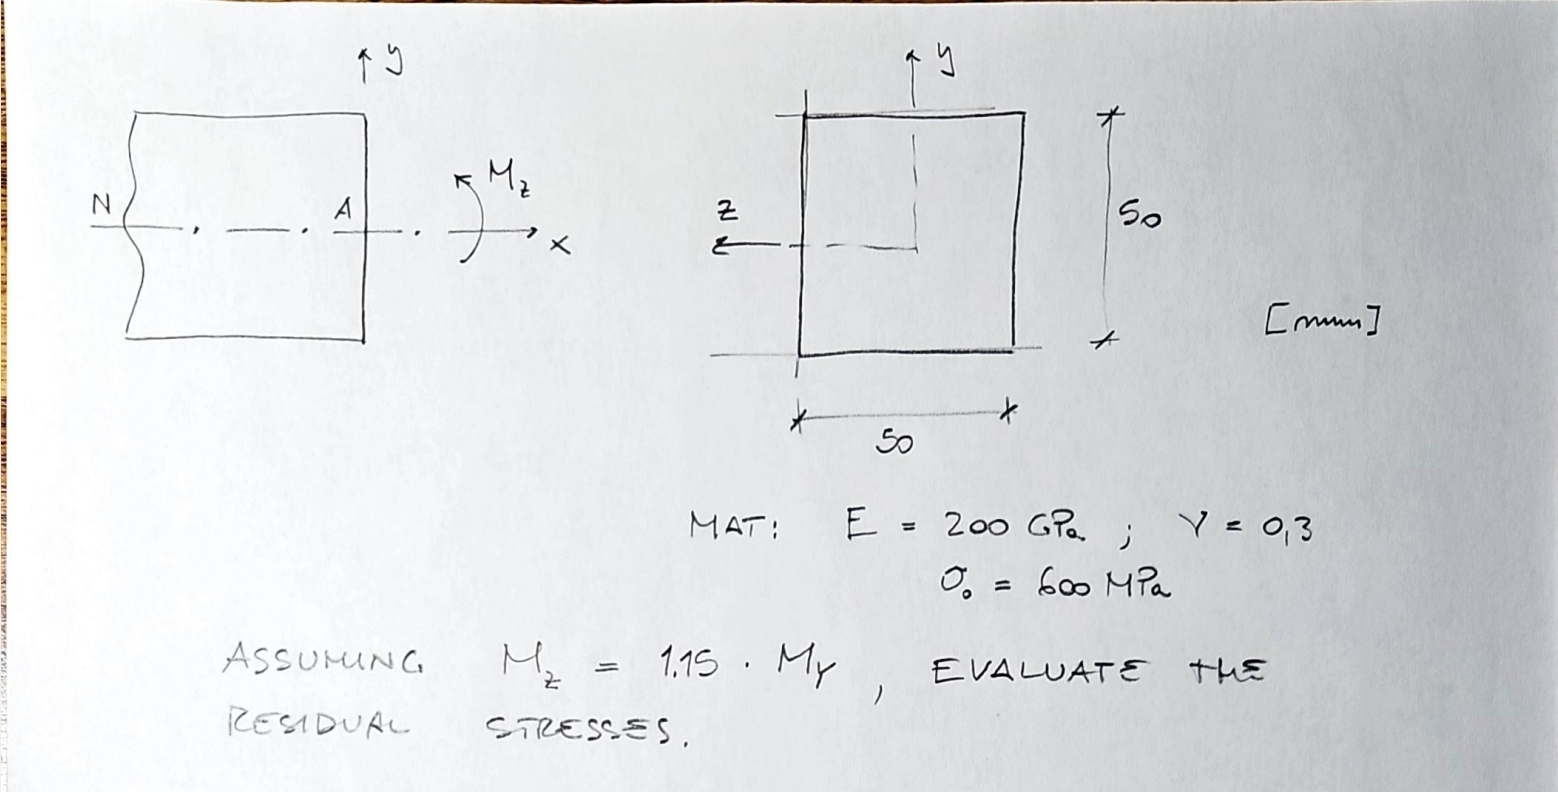 y
y
M_z
N
A
x
z
50
[mm]
50
MAT: E = 200 GPa ; ν = 0,3
σ₀ = 600 MPa
ASSUMING M_z = 1.15 · M_Y , EVALUATE THE
RESIDUAL STRESSES.